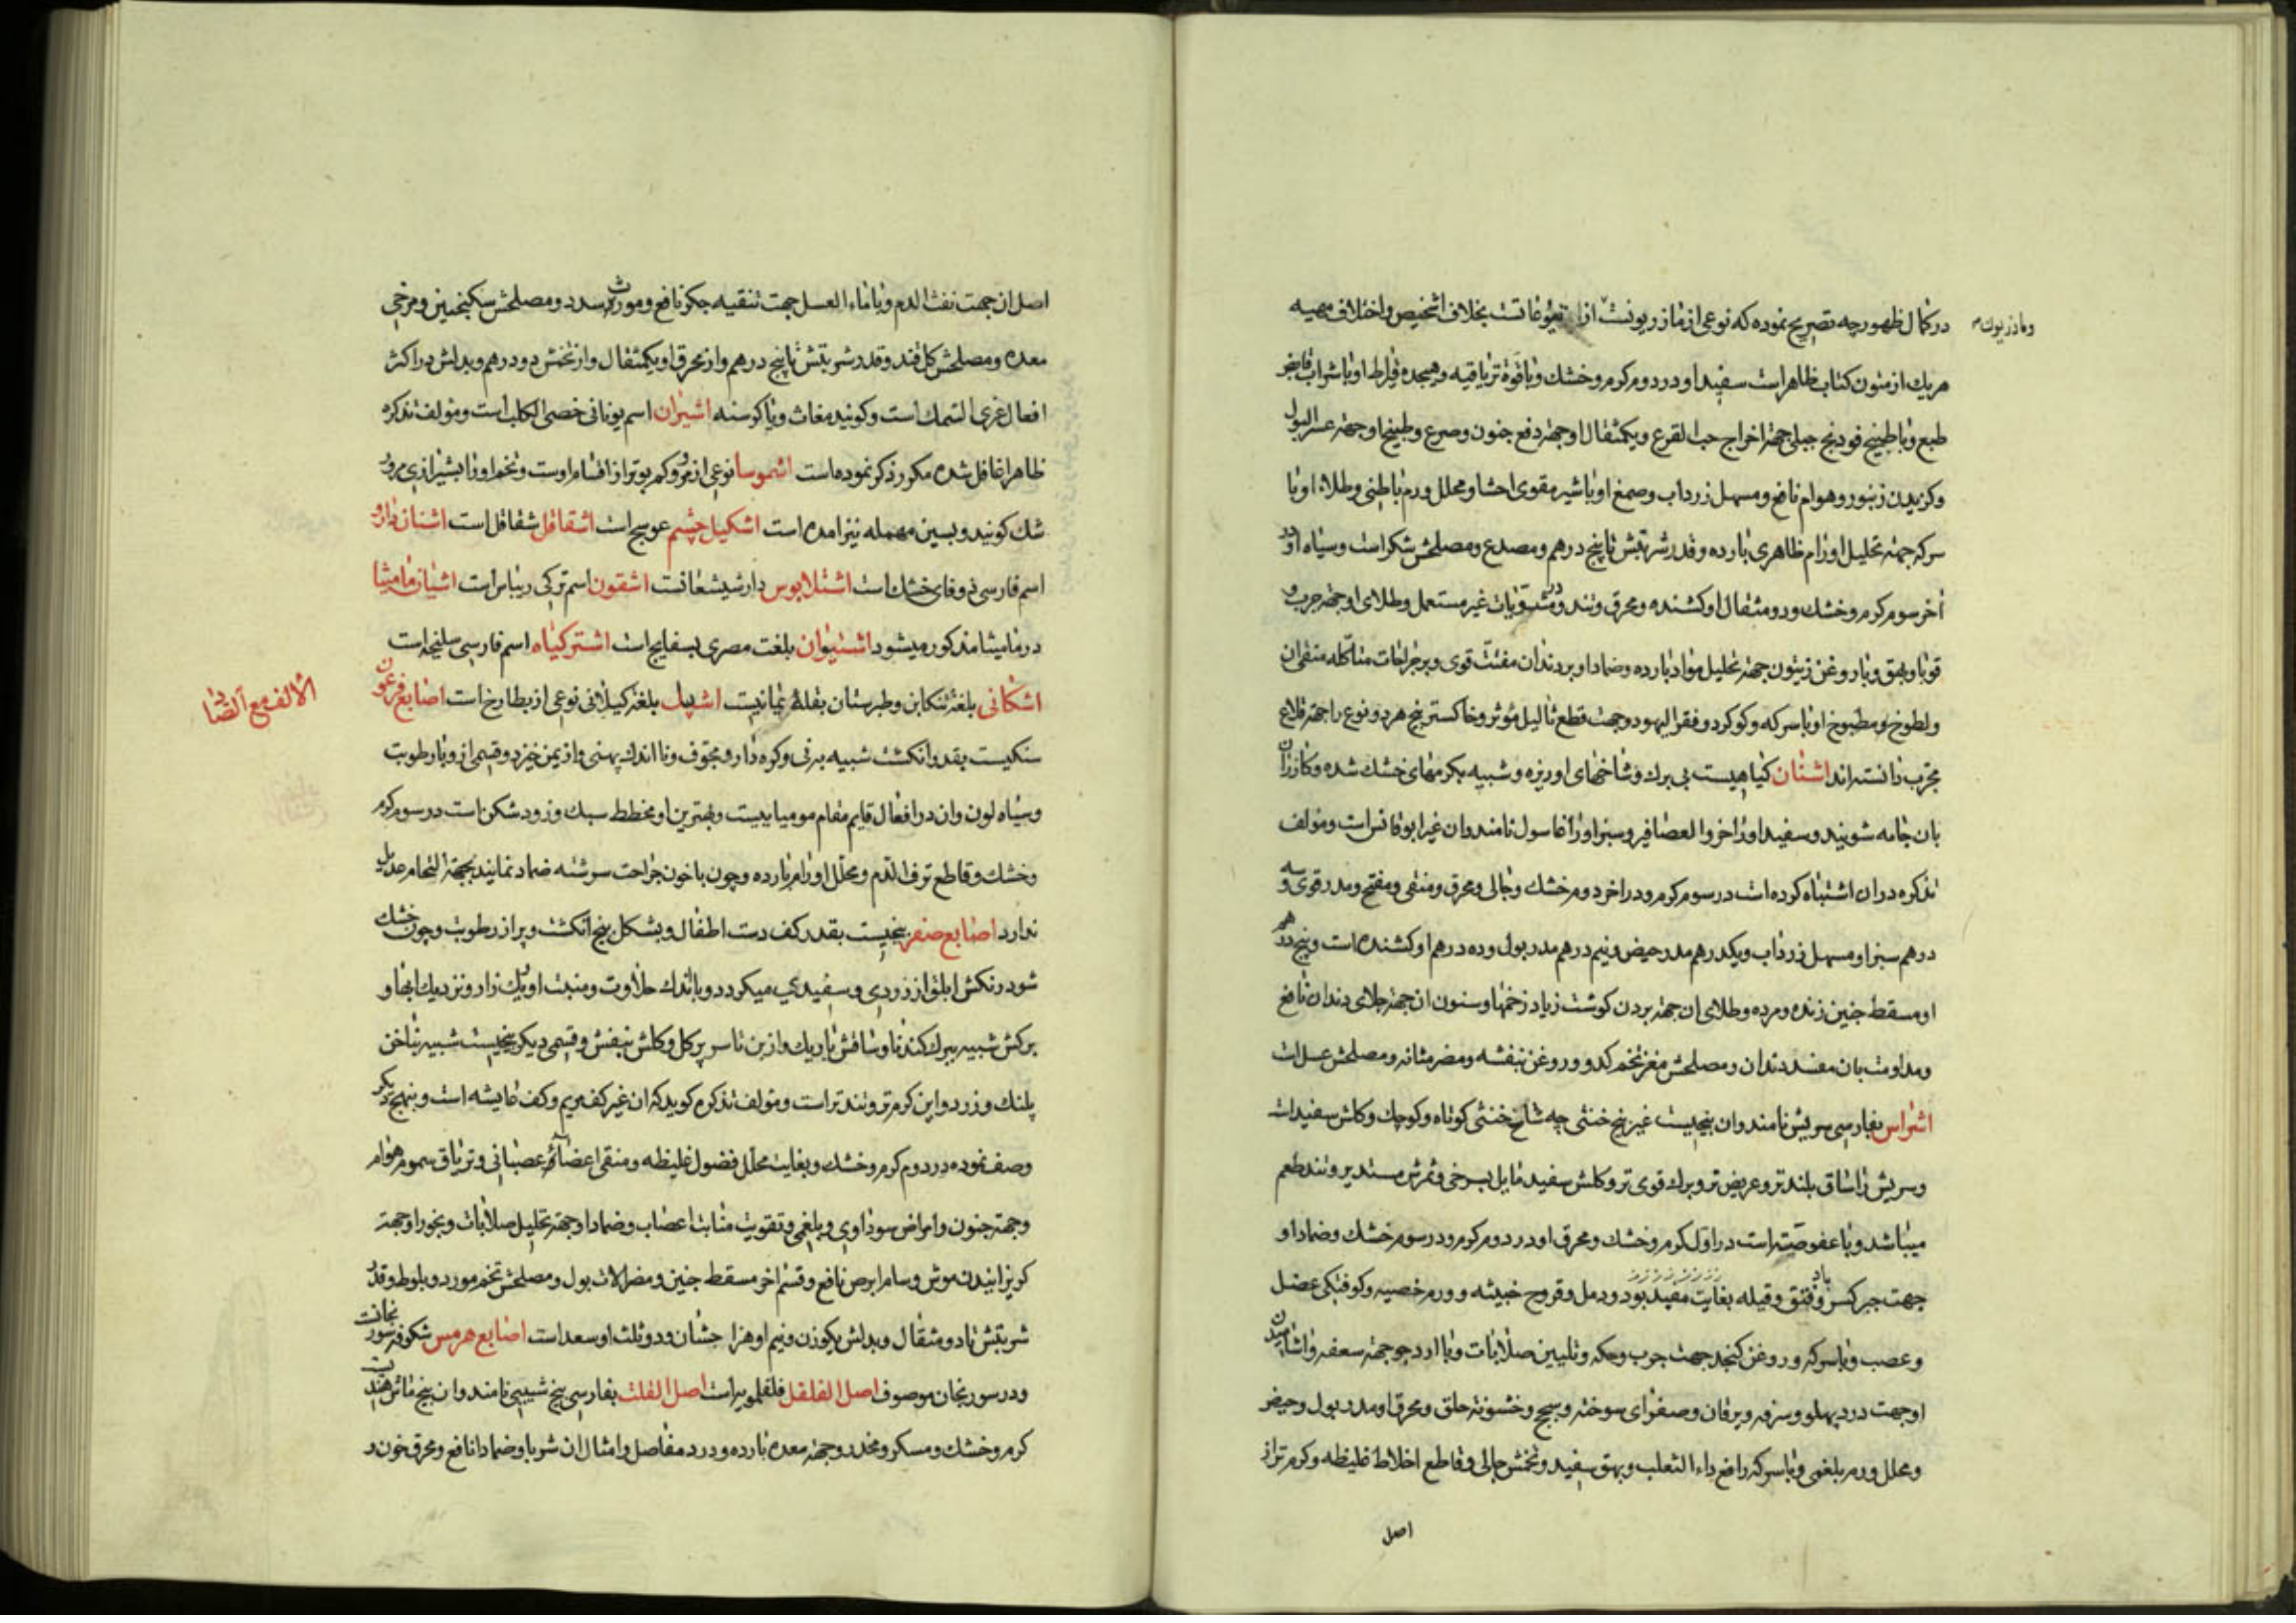 در کمال ظهور چه تصریح نموده که نوعی از مازریونست از یتوعاتست بخلاف اشخیص و اختلاف مهیه
هریك از متون کتاب ظاهر است سفید او در دوم کرم و خشك و با قوة تریاقیه و هیجده قیراط او با شراب قابض
طبع و با طبیخ فودنج جبلی جهة اخراج حب القرع و یکمثقال او جهة دفع جنون و صرع و طبیخ او جهة عسر البول
و کزیدن زنبور و هوام نافع و مسهل زرداب و صمغ او با شیر مقوی احشا و محلل ورم باطنی و طلاء او با
سرکه جهة تحلیل اورام ظاهری بارده و قدر شربتش تا پنج درهم و مصدع و مصلحش شکر است و سیاه او در
آخر سوم کرم و خشك و دو مثقال او کشنده و محرق و تند و در مشروبات غیر مستعمل و طلای او جهة جرب و
قوبا و بهق و با روغن زیتون جهة تحلیل مواد بارده و ضماد او بر دندان مفتت قوی و بر جراحات متآکله منقی ان
و لطوخ مطبوخ او با سرکه و کوکرد و قفر الیهود جهت قطع ثالیل مؤثر و خاکستر بیخ هر دو نوع را جهة قلاع
مجرب دانسته اند اشنان کیاهیست بی برك و شاخهای او ریزه و شبیه بکرمهای خشك شده و کازران
بان جامه شویند و سفید او را خرو العصافیر و سبز او را غاسول نامند و ان غیر ابوقانس است و مؤلف
تذکره در ان اشتباه کرده است در سوم کرم و در اخر دوم خشك و جالی و محرق و منقی و مفتح و مدر قوی و سه
درهم سبز او مسهل زرداب و یکدرهم مدر حیض و نیم درهم مدر بول و ده درهم او کشنده است و پنج درهم
او مسقط جنین زنده و مرده و طلای ان جهة بردن کوشت زیاد زخمها و سنون ان جهة جلای دندان نافع
و مداومت بان مفسد دندان و مصلحش مغز تخم کدو و روغن بنفشه و مضر مثانه و مصلحش عسل است
اشراس بفارسی سریش نامند و ان بیخیست غیر بیخ خنثی چه شاخ خنثی کوتاه و کوچك و کلش سفید است
و سریش را ساق بلندتر و عریض تر و برك قوی تر و کلش سفید مایل بسرخی و ثمرش مستدیر و تند طعم
میباشد و با عفوصتست در اول کرم و خشك و محرق او در دوم کرم و در سوم خشك و ضماد او
جهت جبر کسر و فتق و قیله باد بغایت مفید بود و دمل و قروح خبیثه و ورم خصیه و کوفتکی عضل
و عصب و با سرکه و روغن کنجد جهت جرب و حکه و تلیین صلابات و با ارد جو جهة سعفه و اشامیدن
او جهت درد پهلو و سرفه و یرقان و صفرای سوخته و سحج و خشونة حلق و محرق او مدر بول و حیض
و محلل ورم بلغمی و با سرکه رافع داء الثعلب و بهق سفید و تخمش جالی و قاطع اخلاط غلیظه و کرم تر از
اصل
اصل ان جهت نفث الدم و با ماء العسل جهت تنقیه جکر نافع و مورث سدد و مصلحش سکنجبین و مرخی
معده و مصلحش کلقند و قدر شربتش تا پنج درهم و از محرق او یکمثقال و از تخمش دو درهم و بدلش در اکثر
افعال غری السمك است و کویند مغاث و یا کوسنه اشیران اسم یونانی خصی الکلب است و مؤلف تذکره
ظاهرا غافل شده مکرر ذکر نموده است اشموسا نوعی از مرو و کم بوتر از اقسام اوست و تخم او را بشیرازی مرو
شك کویند و بسین مهمله نیز امده است اشکیل چشم عوسج است اشقاقل شقاقل است اشنان دارو
اسم فارسی زوفای خشك است اشتلابوس دارشیشعانست اشقون اسم ترکی ریباس است اشیاف مامیثا
در مامیثا مذکور میشود اشتیوان بلغت مصری بسفایج است اشترکیاه اسم فارسی سلیخه است
اشکانی بلغة تنکابن و طبرستان بقلۀ یمانیست اشپل بلغة کیلانی نوعی از بطارخ است اصابع فرعون
الالف مع الصاد
سنکیست بقدر انکشت شبیه بر نی و کره دار و مجوف و با اندك پهنی و از یمن خیزد و قسمی از و با رطوبت
و سیاه لون و ان در افعال قایم مقام مومیاییست و بهترین او مخطط سبك و زود شکن است در سوم کرم
و خشك و قاطع نزف الدم و محلل اورام بارده و چون با خون جراحت سرشته ضماد نمایند بجهة التحام عدیل
ندارد اصابع صفر بیخیست بقدر کف دست اطفال و بشکل پنج انکشت و پر از رطوبت و چون خشك
شود رنکش ابلق از زردی و سفیدی میکردد و با اندك حلاوت و منبت او ریك زار و نزدیك ابها و
برکش شبیه ببرك کندنا و ساقش باریك و از بن تا سر پر کل و کلش بنفش و قسمی دیکر بیخیست شبیه بناخن
پلنك و زرد و این کرم تر و تندتر است و مؤلف تذکره کوید که ان غیر کف مریم و کف عایشه است و بنهج دیکر
وصف نموده در دوم کرم و خشك و بغایت محلل فضول غلیظه و منقی اعضاء عصبانی و تریاق سموم هوام
و جهة جنون و امراض سوداوی و بلغمی و تقویت منابت اعصاب و ضماد او جهة تحلیل صلابات و بخور او جهة
کریزانیدن موش و سام ابرص نافع و قسم اخر مسقط جنین و مضر الات بول و مصلحش تخم مورد و بلوط و قدر
شربتش تا دو مثقال و بدلش یکوزن و نیم او هزار جشان و دو ثلث او سعد است اصابع هرمس شکوفه سورنجانست
و در سورنجان موصوف اصل الفلفل فلفلمویه است اصل الفلت بفارسی بیخ شیبی نامند و ان بیخ
کرم و خشك و مسکر و مخدر و جهة معده بارده و درد مفاصل و امثال ان شربا و ضمادا نافع و محرق خون و